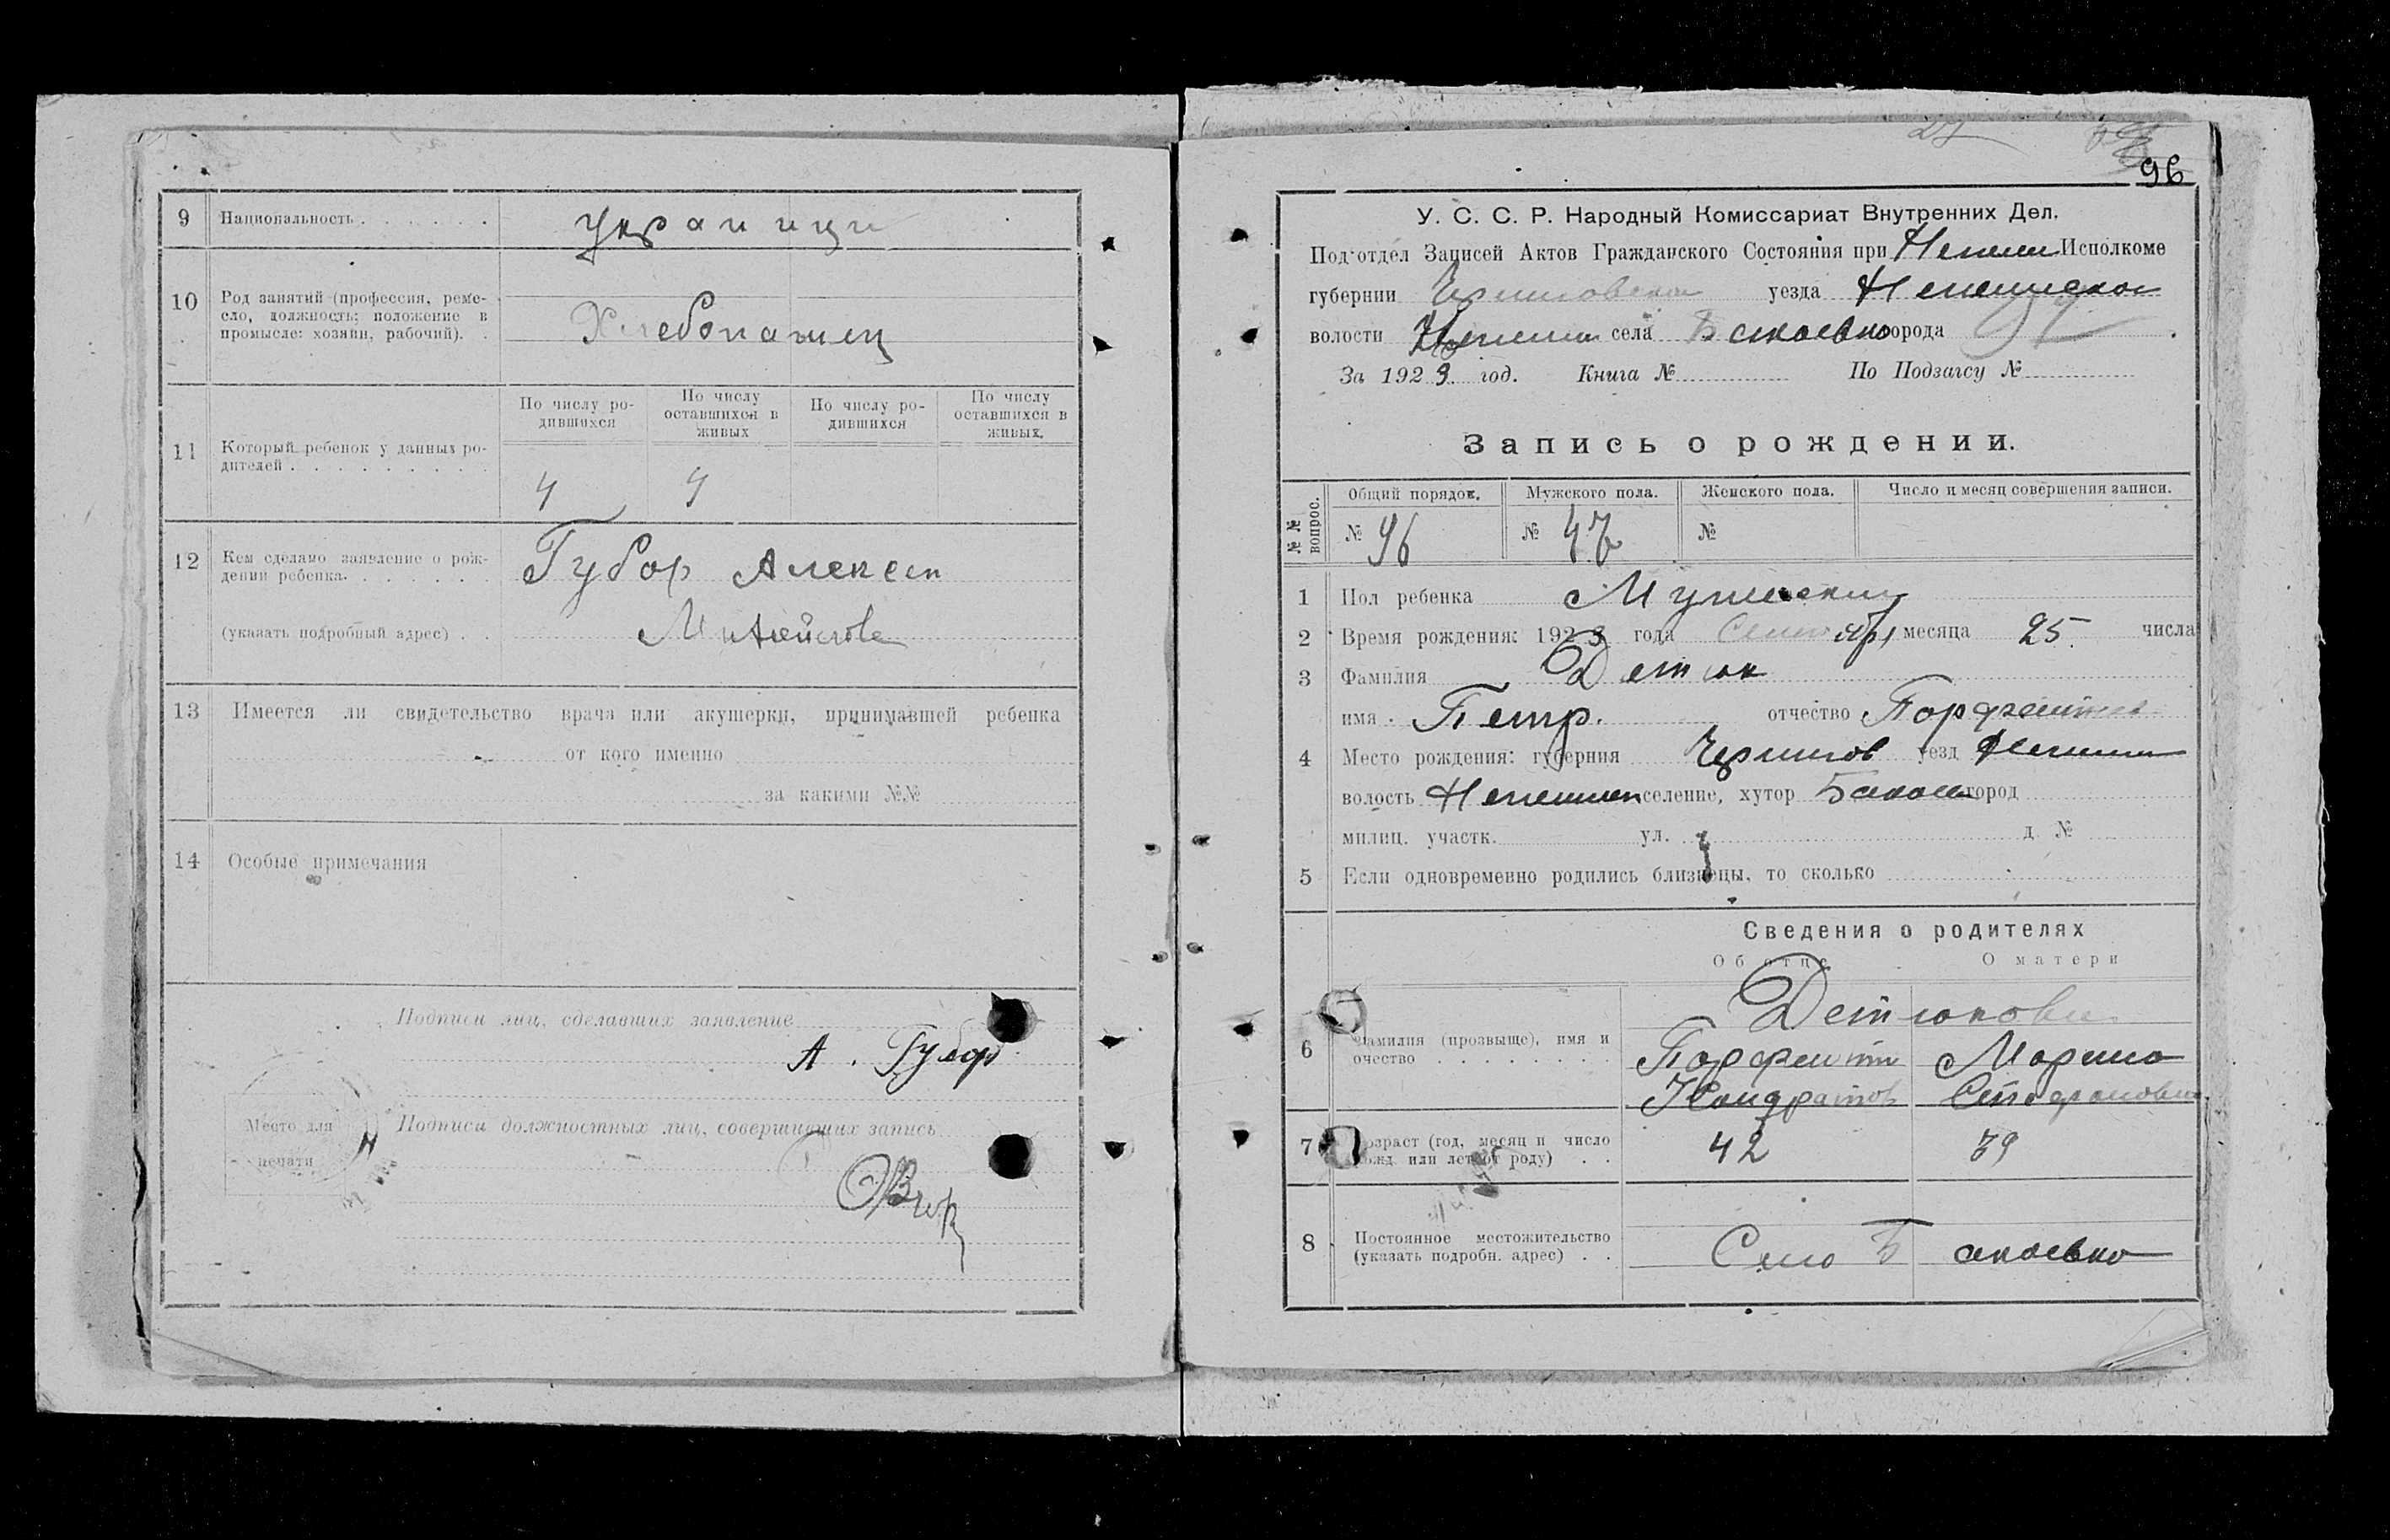 9 Национальность . . . . . . украинци
10 Род занятий (профессия, реме-
сло, должность; положение в
промысле: хозяин, рабочий). .
Хлебопашец
11 Который ребенок у данных ро-
дителей . . . . . . . . .
По числу ро-
дившихся
По числу
оставшихся в
живых
По числу ро-
дившихся
По числу
оставшихся в
живых.
4 4
12 Кем сделано заявление о рож-
дении ребенка. . . . . . .
Губор Алексей
(указать подробный адрес) . .
13 Имеется ли свидетельство врача или акушерки, принимавшей ребенка
от кого именно
за какими №№
14 Особые примечания
Подписи лиц, сделавших заявление
А. Губор
Место для
печати
Подписи должностных лиц, совершивших запись
96
У. С. С. Р. Народный Комиссариат Внутренних Дел.
Подотдел Записей Актов Гражданского Состояния при Нежин Исполкоме
губернии Черниговской уезда Нежинском
волости Нежин села города
За 1923 год. Книга № По Подзагсу №
Запись о рождении.
№№ вопрос.
Общий порядок. Мужского пола. Женского пола. Число и месяц совершения записи.
№ 96 № 47 №
1 Пол ребенка Мужский
2 Время рождения: 1923 года Сентябр месяца 25 числа
3 Фамилия Детюк
имя Петр. отчество Порфентов
4 Место рождения: губерния Чернигов уезд Нежин
волость Нежинск селение, хутор город
милиц. участк. ул. д №
5 Если одновременно родились близнецы, то сколько
Сведения о родителях
Об отце О матери
6 Фамилия (прозвыще), имя и
очество . . . . . . . .
Детюкови
Порфентий Марина
Кондратов Стефановна
7 Возраст (год, месяц и число
рожд. или лет от роду) . .
42 39
8 Постоянное местожительство
(указать подробн. адрес) . .
Село